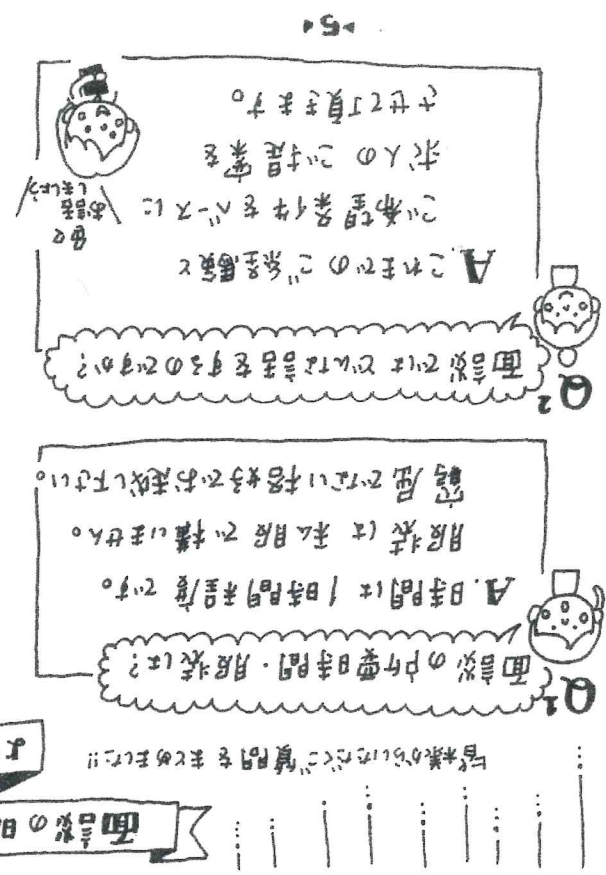 面談の
よ
皆様からいただくご質問をまとめました!!
Q1
面談の所要時間・服装は?
A. 時間は1時間程度です。
服装は私服で構いません。
窮屈でない格好でお越し下さい。
Q2
面談ではどんな話をするのですか?
A. これまでのご経験と
ご希望条件をベースに
求人のご提案を
させて頂きます。
色々
お話
しましょう
5